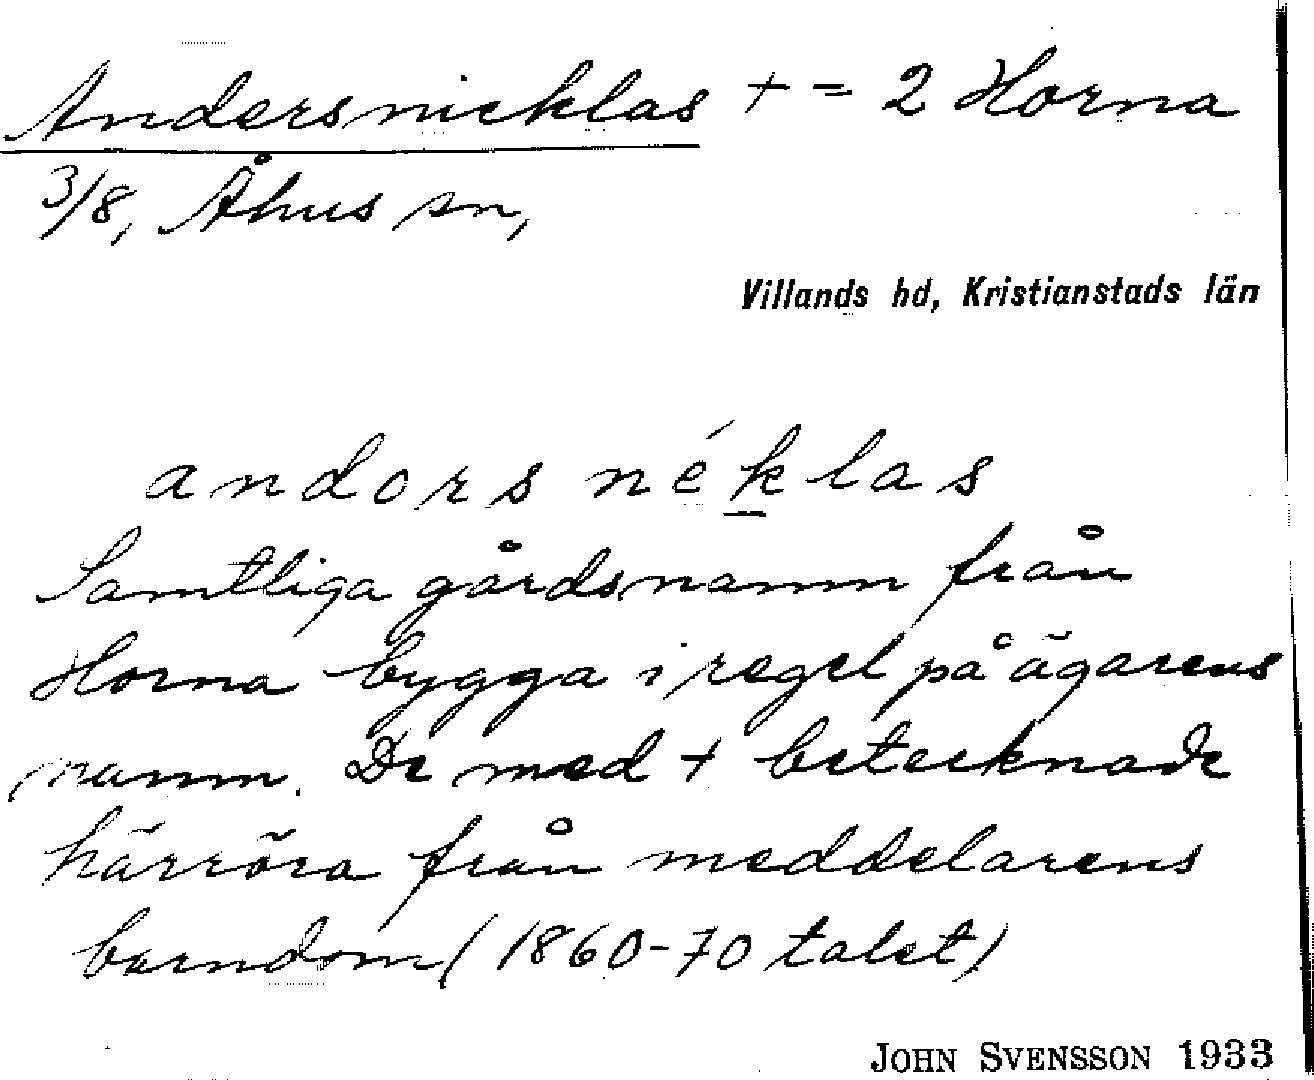 Andersnicklas + = 2 Horna
3/8, Åhus sn,
Villands hd, Kristianstads län
andors néklas
Samtliga gårdsnamn från
Horna bygga i regel på ägarens
namn. De med + betecknade
härröra från meddelarens
barndom (1860-70 talet)
JOHN SVENSSON 1933